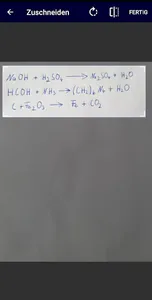 Zuschneiden FERTIG
NaOH + H₂SO₄ → Na₂SO₄ + H₂O
HCOH + NH₃ → (CH₂)₆N₄ + H₂O
C + Fe₂O₃ → Fe + CO₂